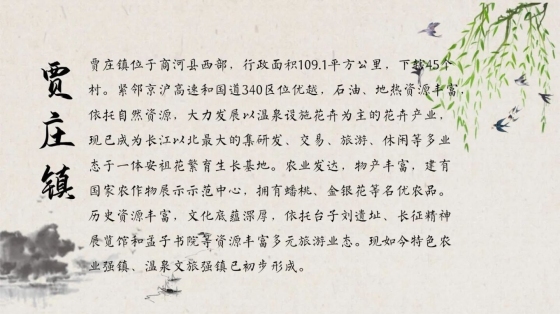 贾庄镇
贾庄镇位于商河县西部，行政面积109.1平方公里，下辖45个
村。紧邻京沪高速和国道340区位优越，石油、地热资源丰富，
依托自然资源，大力发展以温泉设施花卉为主的花卉产业，
现已成为长江以北最大的集研发、交易、旅游、休闲等多业
态于一体安祖花繁育生长基地。农业发达，物产丰富，建有
国家农作物展示示范中心，拥有蟠桃、金银花等名优农品。
历史资源丰富，文化底蕴深厚，依托台子刘遗址、长征精神
展览馆和孟子书院等资源丰富多元旅游业态。现如今特色农
业强镇、温泉文旅强镇已初步形成。